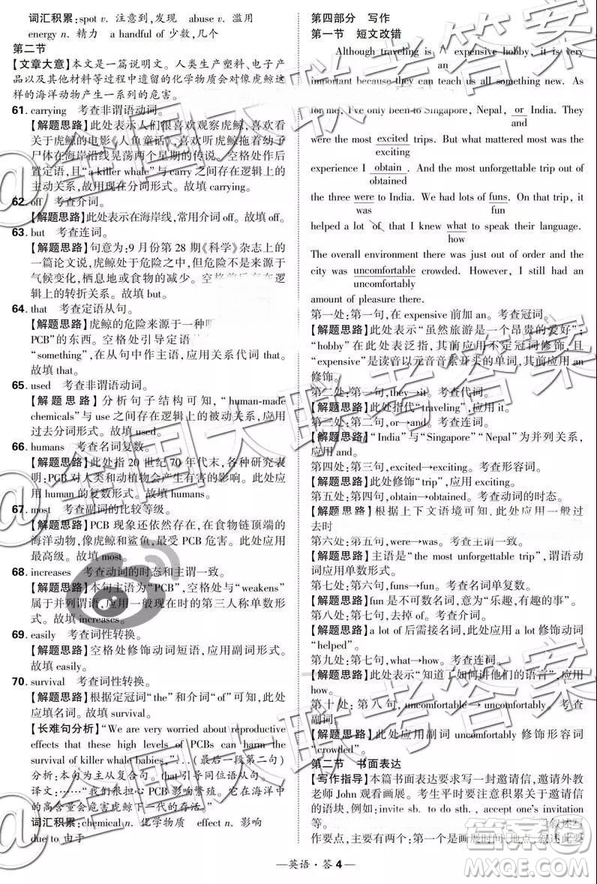 词汇积累:spot v. 注意到,发现 abuse v. 滥用
energy n. 精力 a handful of 少数,几个
第二节
【文章大意】本文是一篇说明文。人类生产塑料、电子产
品以及其他材料等过程中遗留的化学物质会对像虎鲸这样
的海洋动物造成一系列的危害。
61. carrying 考查非谓语动词。
【解题思路】此处表示人们很喜欢观察虎鲸,喜欢看
关于虎鲸的电影《人鱼童话》,关心虎鲸拖着幼子
尸体在海岸沿线晃荡两个星期的传说。空格处作后
置定语,且“a killer whale”与 carry 之间存在逻辑上的
主动关系,故应用现在分词形式。故填 carrying。
62. off 考查介词。
【解题思路】此处表示在海岸线,常用介词 off。故填 off。
63. but 考查连词。
【解题思路】句意为:9 月份第 28 期《科学》杂志上的
一篇论文说,虎鲸处于危险之中,但不是因为受到气
候变化,栖息地或食物的减少。空格处存在逻辑上
的转折关系。故填 but。
64. that 考查定语从句。
【解题思路】虎鲸的危险来源于一种
PCB”的东西。空格处引导定语
“something”,在从句中作主语,应用关系代词 that。
故填 that。
65. used 考查非谓语动词。
【解题思路】分析句子结构可知,“human-made
chemicals”与 use 之间存在逻辑上的被动关系,应用
过去分词形式。故填 used。
66. humans 考查名词复数。
【解题思路】此处指 20 世纪 70 年代末,各种研究表
明:PCB 对人类和动植物产生有害的影响。此处应
用 human 的复数形式。故填 humans。
67. most 考查副词的比较等级。
【解题思路】PCB 现象还依然存在,在食物链顶端的
海洋动物,像虎鲸和鲨鱼,最受 PCB 危害。应用副词
的最高级。故填 most。
68. increases 考查动词的时态和主谓一致。
【解题思路】本句主语为“PCB”,空格处与“weakens”
属于并列谓语,应用一般现在时的第三人称单数形
式。故填 increases。
69. easily 考查词性转换。
【解题思路】空格处修饰动词短语,应用副词形式。
故填 easily。
70. survival 考查词性转换。
【解题思路】根据定冠词“the”和介词“of”可知,空
格处应用名词形式。故填 survival。
【长难句分析】“We are very worried about reproductive
effects that these high levels of PCBs can have on the
survival of killer whale babies,”...(最后一段第二句)
分析:本句为主从复合句。句中 that 引导定语从句。
译文:……“我们很担忧生殖影响,它在海洋中的
高含量会危害虎鲸下一代的存活。”
词汇积累:chemical n. 化学物质 effect n. 影响
due to 由于
第四部分 写作
第一节 短文改错
Although traveling is ∧ expensive hobby, it is very
because they can teach us all something new. As
for me, I've been to Singapore, Nepal, or India. They
and
were the most excited trips. But what mattered most was the
exciting
experience I obtain. And the most unforgettable trip out of
obtained
the three were to India. We had lots of funs. On that trip, it
was fun
also helped me a lot of what to speak their language.
how
The overall environment there was just out of order and the
city was uncomfortable crowded. However, I still had an
uncomfortably
amount of pleasure there.
第一处:第一句,在 expensive 前加 an。考查冠词。
【解题思路】此处表示“虽然旅游是一个昂贵的爱好”;
“hobby”在此处表示泛指,应用不定冠词修饰,且
“expensive”是读音以元音音素开头的单词,其前应用 an
修饰。
第二处:第一句,they→it。考查代词。
【解题思路】此处指代“traveling”,应用 it。
第三处:第二句,or→and。考查连词。
【解题思路】“India”与“Singapore”“Nepal”为并列关系,
应用 and。
第四处:第三句,excited→exciting。考查形容词。
【解题思路】修饰“trip”,应用 exciting。
第五处:第四句,obtain→obtained。考查动词的时态。
【解题思路】根据上下文语境可知,应用一般过
去时
第六处:第五句,were→was。考查主谓一致。
【解题思路】主语是“the most unforgettable trip”,应用
单数形式。
第七处:第六句,funs→fun。考查名词单复数。
【解题思路】fun 是不可数名词,意为“乐趣,有趣的事”。
第八处:第七句,去掉 of。考查介词。
【解题思路】a lot of 后需接名词,而 a lot 作状语修饰动词
“helped”。
第九处:第七句,what→how。考查连词。
【解题思路】此处表示“知道了如何讲他们的语言”,应用
how。
第十处:第八句,uncomfortable→uncomfortably。
考查副词。
【解题思路】此处应用副词形式修饰形容词
“crowded”。
第二节 书面表达
【写作指导】本篇书面表达要求写一封邀请信,邀请外教
老师 John 观看画展。考生平时要注意积累关于邀请信
的语块,例如:invite sb. to do sth. , accept one's invitation
等。
作要点,主要有以下几点:
—英语·答 4—
答案圈
MXQE.COM
@全国大联考答案